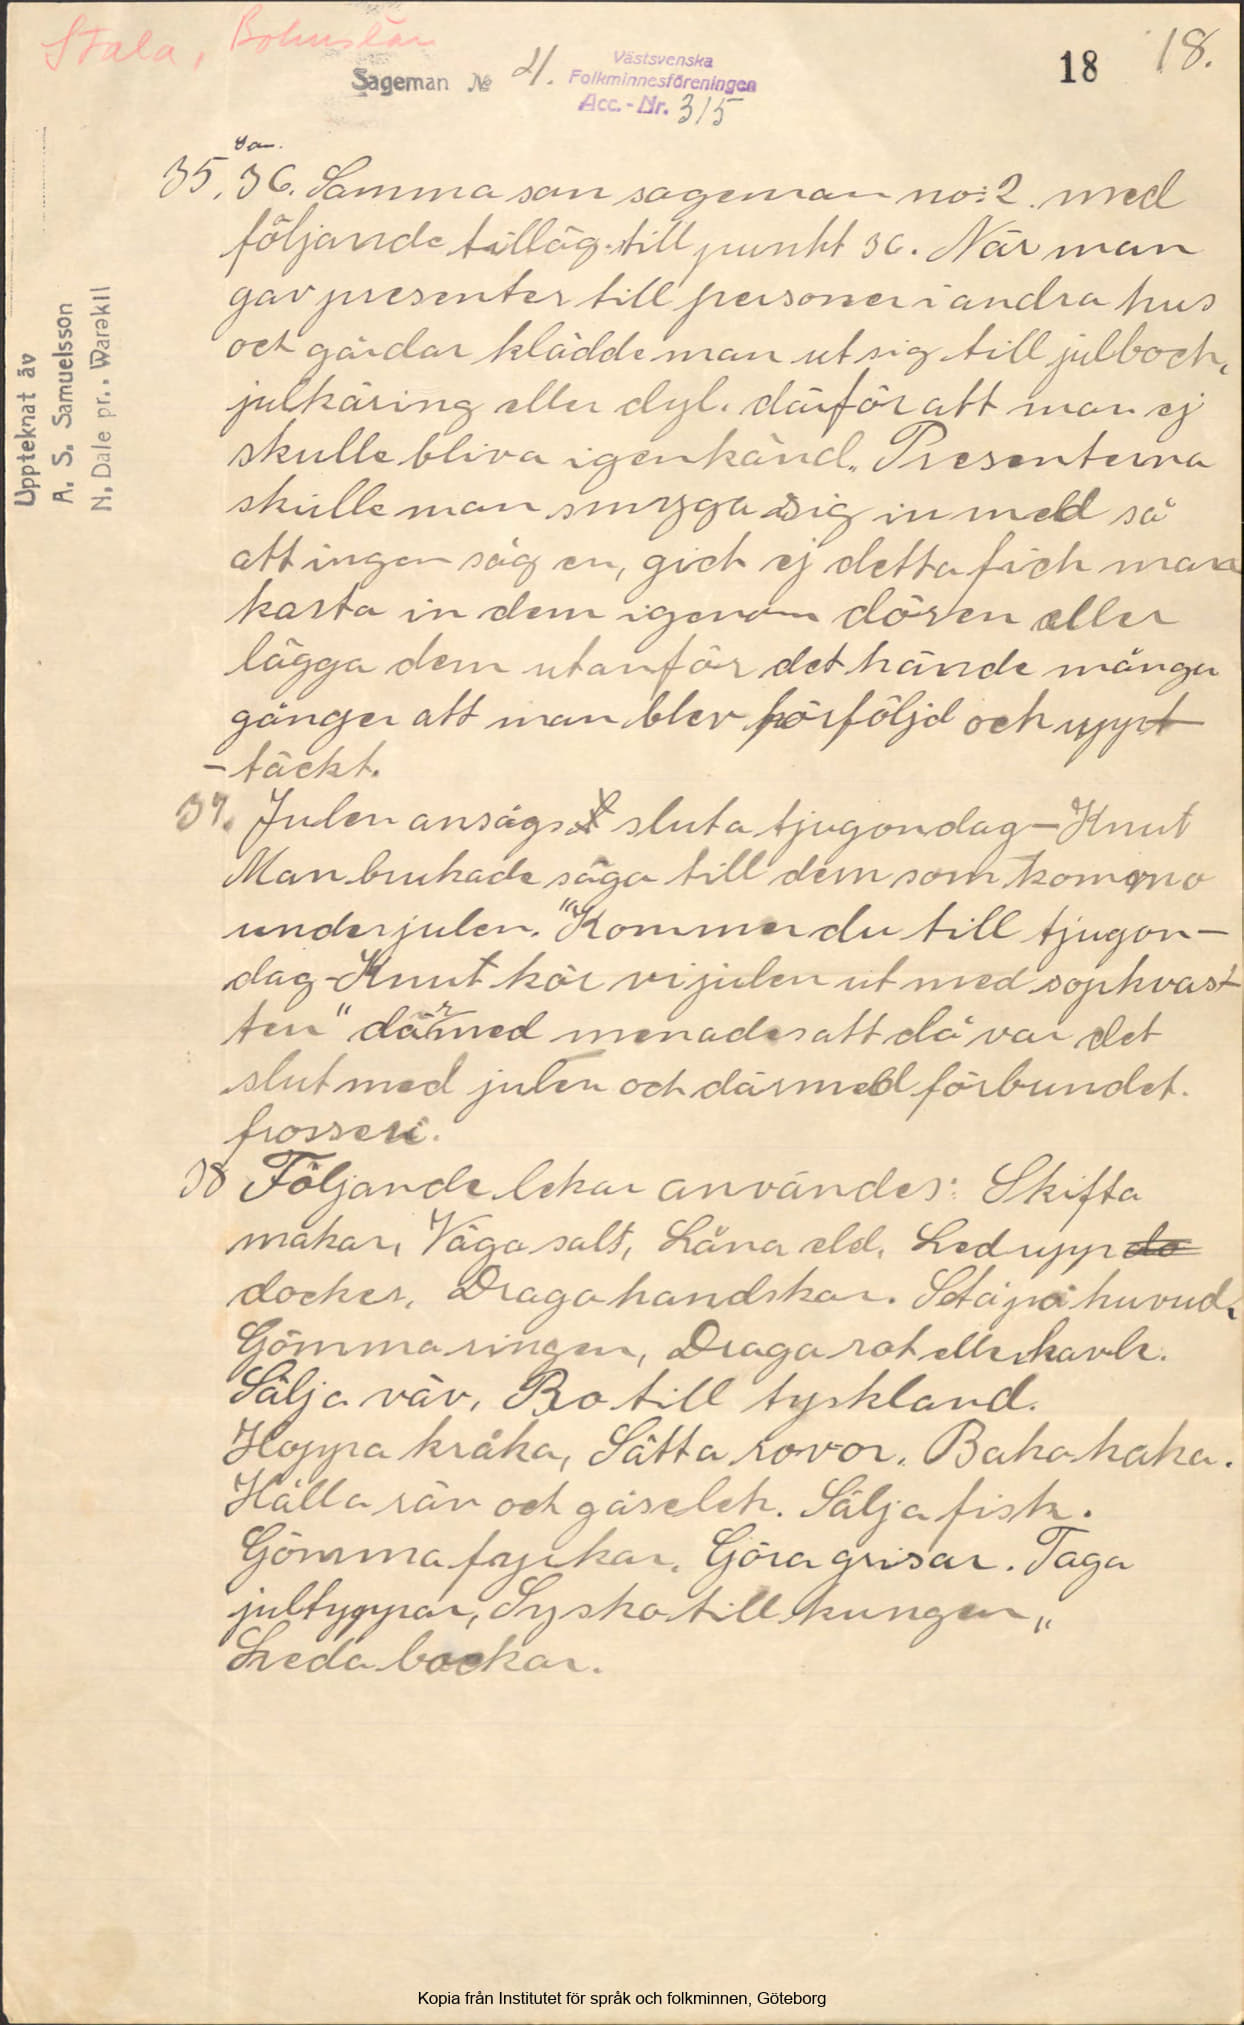 Stala, Bohuslän
Sageman № 4.
Västsvenska
Folkminnesföreningen
Acc.-Nr. 315
18
18.
Uppteknat äv
A. S. Samuelsson
N. Dale pr. Warəkil
35, 36. Samma som sageman no: 2. med
följande tilläg. till punkt 36. När man
gav presenter till personer i andra hus
och gårdar klädde man ut sig till julbock,
julkäring eller dyl. därför att man ej
skulle bliva igenkänd. Presenterna
skulle man smyga sig in med så
att ingen såg en, gick ej detta fick man
kasta in dem igenom dören eller
lägga dem utanför det hände många
gånger att man blev förföljd och uppt
- täckt.
37. Julen ansågs sluta tjugondag - Knut
Man brukade säga till dem som kommo
under julen. "Kommer du till tjugon-
dag - Knut kör vi julen ut med sophvast
ten" därmed menades att då var det
slut med julen och därmed förbundet.
frosseri.
38 Följande lekar användes: Skifta
makar, Väga salt, Låna eld, Led upp do
docker, Draga handskar. Stå på huvud,
Gömma ringen, Draga rot eller kavle.
Sälja väv, Ro till tyskland.
Hoppa kråka, Sätta rovor. Baka kaka.
Hålla räv och gåselek. Sälja fisk.
Gömma fyrkar. Göra grisar. Taga
jultuppar, Syska till kungen,,
Leda bockar.
Kopia från Institutet för språk och folkminnen, Göteborg